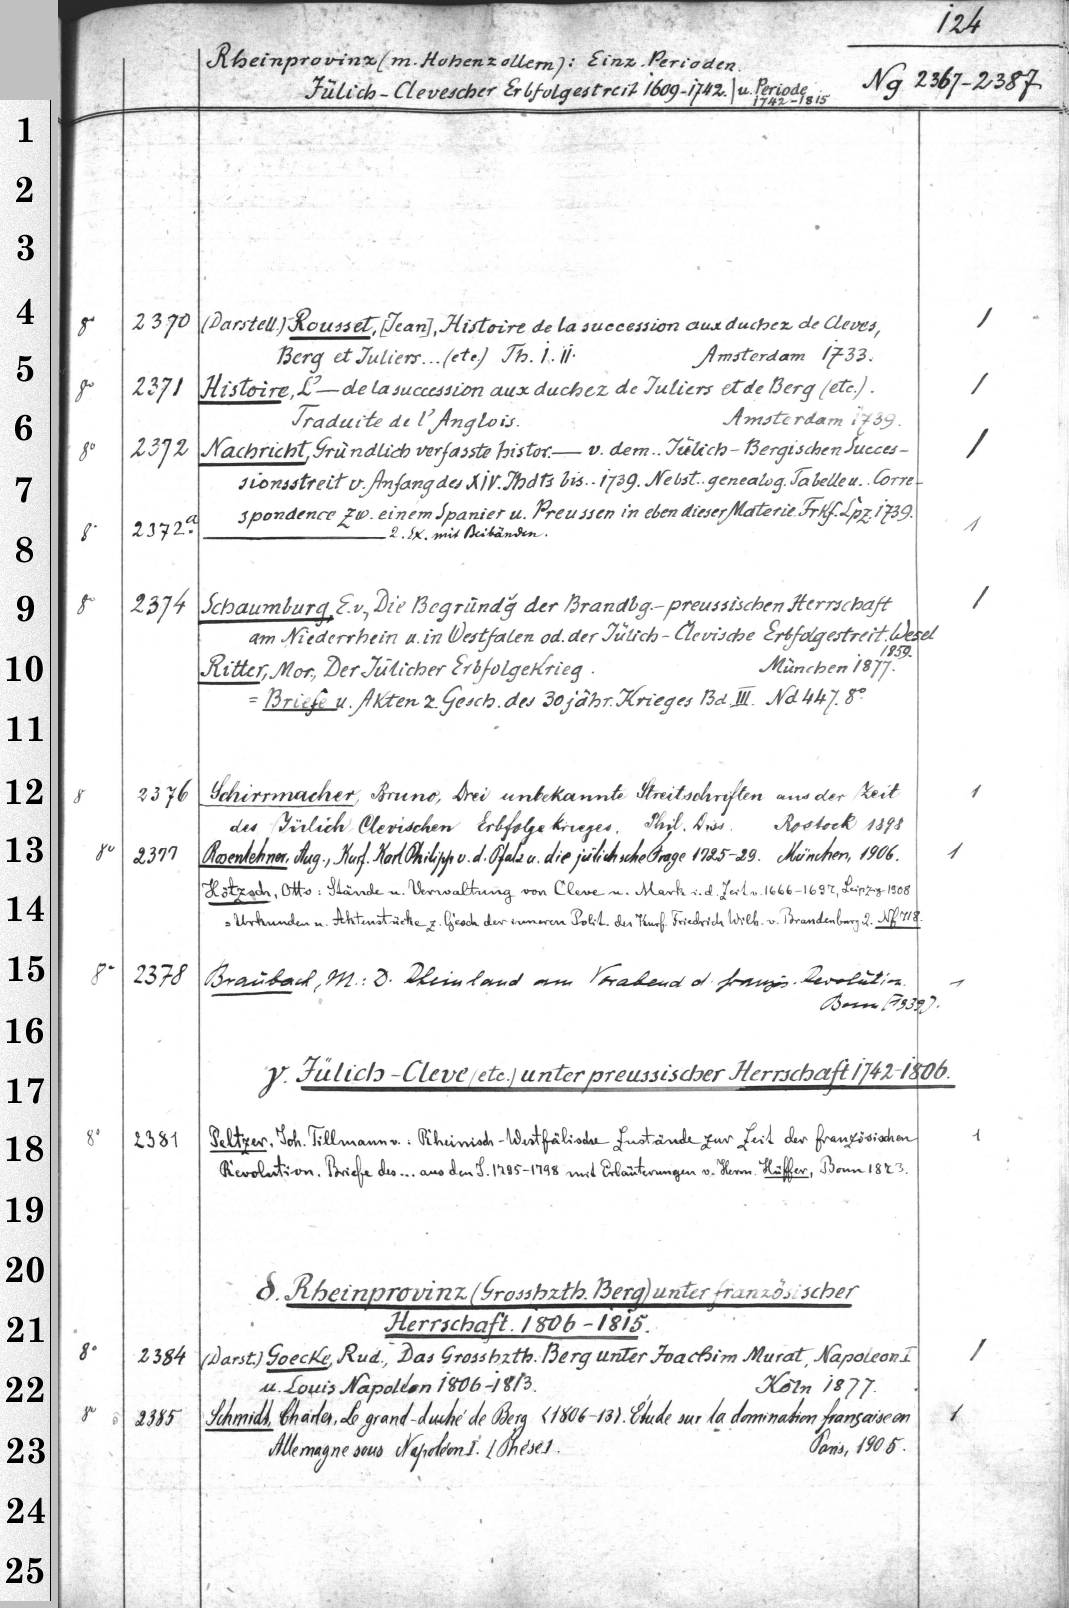 124
Rheinprovinz (m. Hohenzollern): Einz. Perioden.
Jülich-Clevescher Erbfolgestreit 1609-1742. | u. Periode 1742-1815
Ng 2367-2387
1
2
3
4
8° 2370 (Darstell.) Rousset, [Jean], Histoire de la succession aux duchez de Cleves, 1
Berg et Juliers... (etc.) Th. I. II. Amsterdam 1733.
5
8° 2371 Histoire, L'— de la succession aux duchez de Juliers et de Berg (etc.). 1
6
Traduite de l'Anglois. Amsterdam 1739.
8° 2372 Nachricht, Gründlich verfasste histor. — v. dem.. Jülich-Bergischen Succes- 1
7
sionsstreit v. Anfang des XIV. Jhdts bis.. 1739. Nebst.. genealog. Tabelle u.. Corre-
spondence zw. einem Spanier u. Preussen in eben dieser Materie. Frkf. Lpz. 1739.
8
8° 2372a ———— 2. Ex. mit Beibänden. 1
9
8° 2374 Schaumburg, E. v., Die Begründg der Brandbg.-preussischen Herrschaft 1
am Niederrhein u. in Westfalen od. der Jülich-Clevische Erbfolgestreit. Wesel 1859.
10
Ritter, Mor., Der Jülicher Erbfolgekrieg. München 1877.
= Briefe u. Akten z. Gesch. des 30jähr. Krieges Bd III. Nd 447. 8°
11
12
8 2376 Schirrmacher, Bruno, Drei unbekannte Streitschriften aus der Zeit 1
des Jülich Clevischen Erbfolgekrieges. Phil. Diss. Rostock 1898
13
8° 2377 Rosenlehner, Aug., Kurf. Karl Philipp v. d. Pfalz u. die jülichsche Frage 1725-29. München, 1906. 1
14
Hötzsch, Otto: Stände u. Verwaltung von Cleve u. Mark i. d. Zeit v. 1666-1697, Leipzig 1908
= Urkunden u. Aktenstücke z. Gesch der inneren Polit. des Kurf. Friedrich Wilh. v. Brandenburg 2. Nf 718.
15
8° 2378 Braubach, M.: D. Rheinland am Vorabend d. französ. Revolution. 1
Bonn (1939).
16
17
γ. Jülich-Cleve (etc.) unter preussischer Herrschaft 1742-1806.
18
8° 2381 Peltzer, Joh. Tillmann v.: Rheinisch-Westfälische Zustände zur Zeit der französischen 1
Revolution. Briefe des... aus den J. 1795-1798 mit Erläuterungen v. Herm. Hüffer, Bonn 1873.
19
20
δ. Rheinprovinz (Grosshzth. Berg) unter französischer
21
Herrschaft. 1806-1815.
8° 2384 (Darst.) Goecke, Rud., Das Grosshzth. Berg unter Joachim Murat, Napoleon I 1
22
u. Louis Napoléon 1806-1813. Köln 1877.
8° 2385 Schmidt, Charles, Le grand-duché de Berg (1806-13). Étude sur la domination française en 1
23
Allemagne sous Napoléon I. [Thèse]. Paris, 1905.
24
25